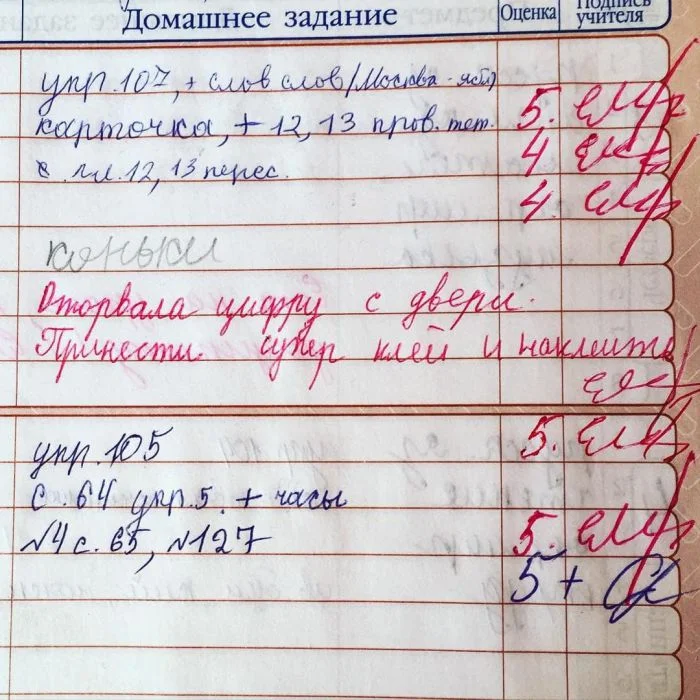 Домашнее задание
Оценка
Подпись учителя
упр. 107, + слов слов (Москва - ябл)
5.
карточка, + 12, 13 пров. тет.
4.
с. 12, 13 перес.
4.
коньки
Оторвала цифру с двери.
Принести супер клей и наклеить
упр. 105
5.
с. 64 упр. 5. + часы
№4 с. 65, №127
5.
5+